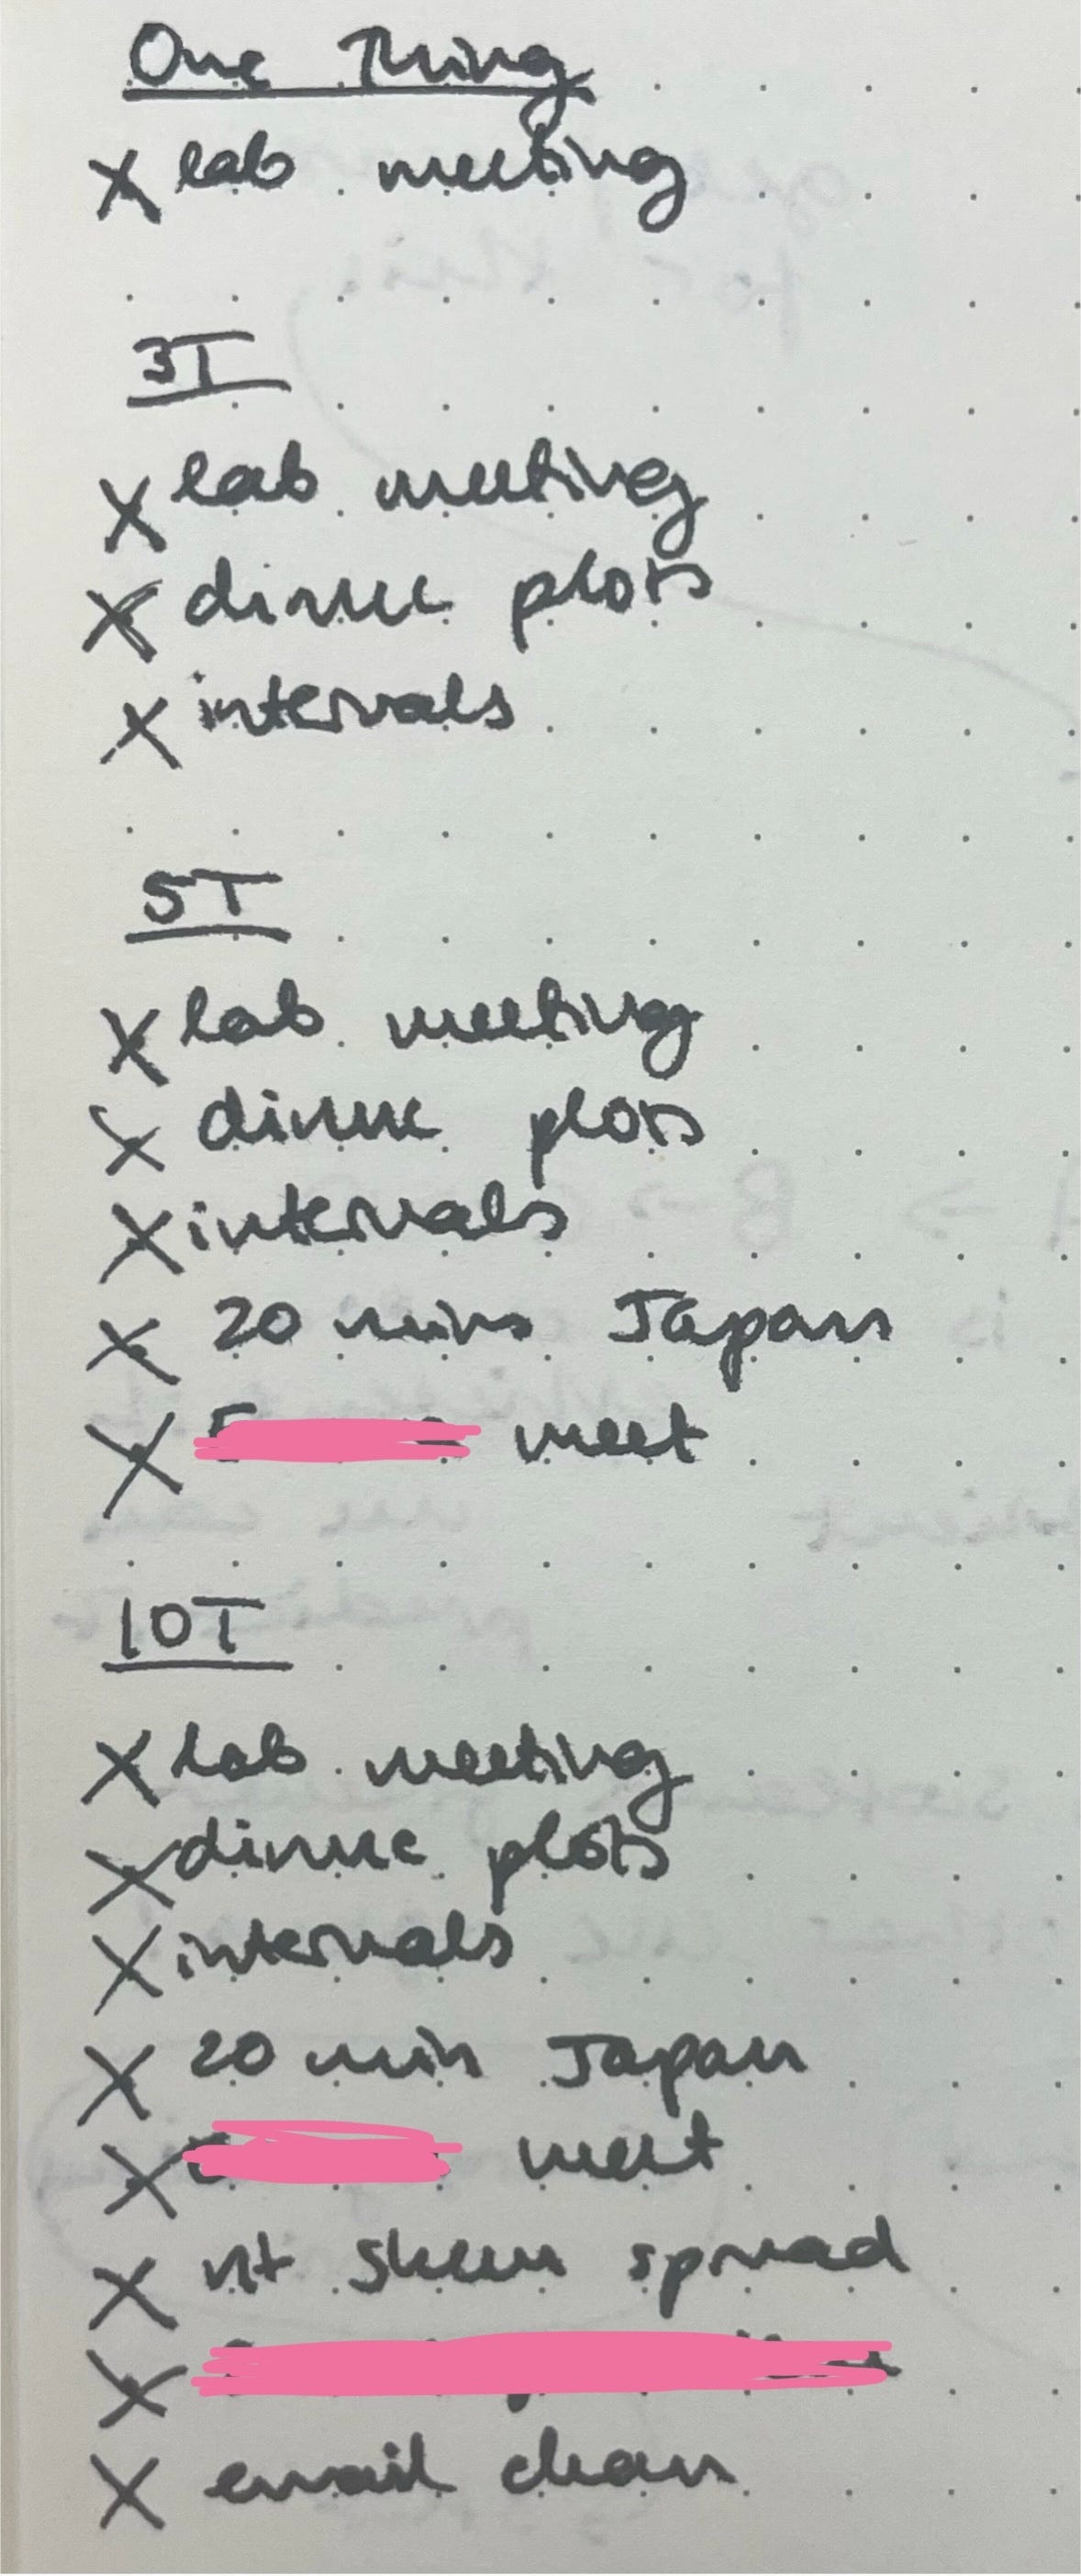 One Thing
X lab meeting
3T
X lab meeting
X dinuc plots
X intervals
5T
X lab meeting
X dinuc plots
X intervals
X 20 mins Japan
X meet
10T
X lab meeting
X dinuc plots
X intervals
X 20 min Japan
X meet
X nt skew spread
X
X email clean